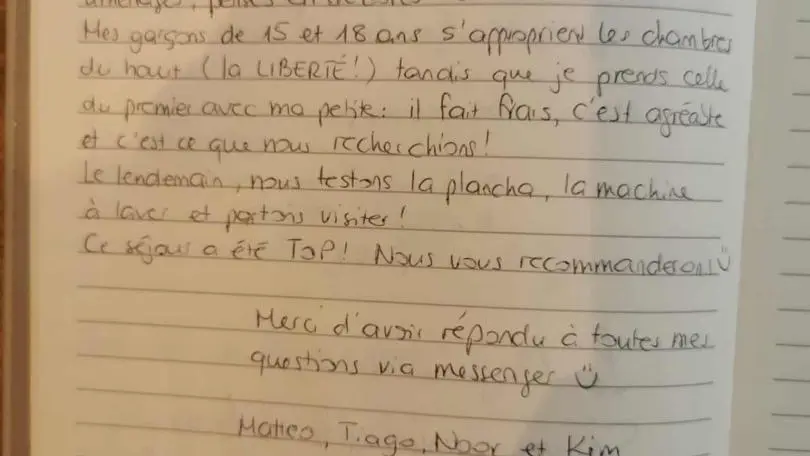 aménagé,
Mes garçons de 15 et 18 ans s'approprient les chambres
du haut (la LIBERTÉ!) tandis que je prends celle
du premier avec ma petite : il fait frais, c'est agréable
et c'est ce que nous recherchions!
Le lendemain, nous testons la plancha, la machine
à laver et partons visiter!
Ce séjour a été TOP! Nous vous recommanderons
Merci d'avoir répondu à toutes mes
questions via messenger
Matteo, Tiago, Noor et Kim